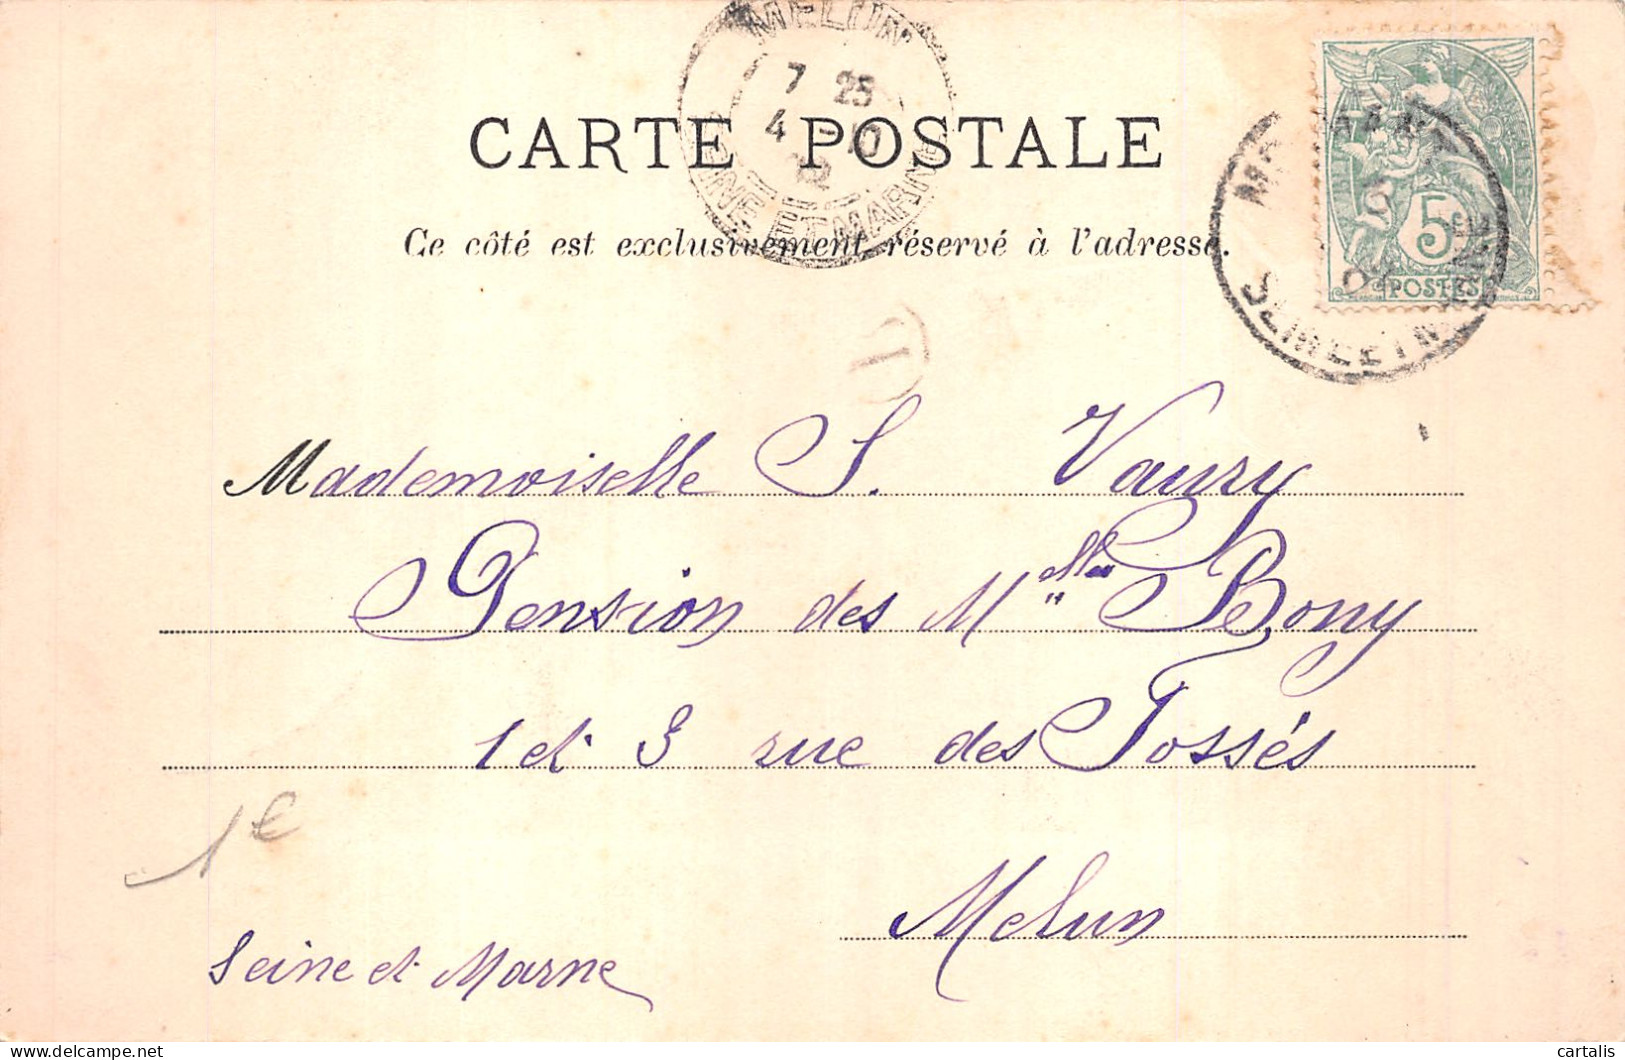 MELUN
7 25
4 -10
02
SEINE ET MARNE
CARTE POSTALE
Ce côté est exclusivement réservé à l'adresse.
5
POSTES
Mademoiselle S. Vaury
Pension des Melles Bony
1 et 3 rue des Fossés
Melun
1€
Seine et Marne
cartalis